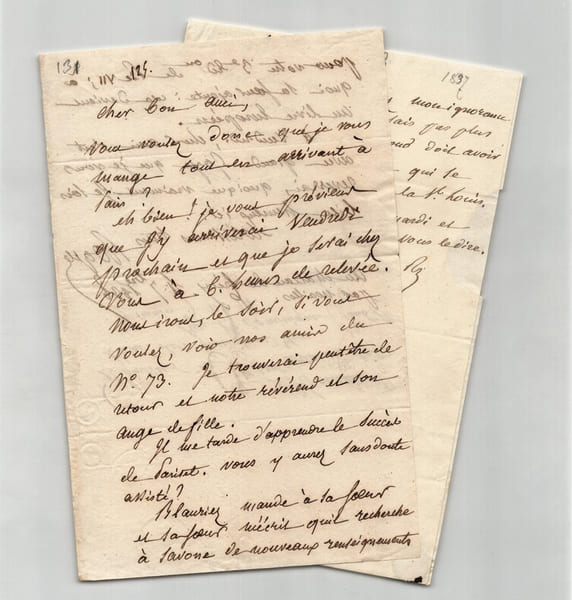 131
VII, 125.
cher bon ami,
Vous voulez donc que je vous
mange tout en arrivant à
Paris?
eh bien! je vous préviens
que j'y arriverai Vendredi
prochain et que je serai chez
Vous à 6. heures de relevée.
Nous irons, le soir, si vous
voulez, voir nos amis du
N°. 73. Je trouverai peutêtre de
retour et notre révérend et son
ange de fille.
Il me tarde d'apprendre le succès
de Pariset. vous y aurez sans doute
assisté?
mande à sa sœur
et sa sœur m'écrit qu'il recherche
à Savone de nouveaux renseignements
1837
mon ignorance
pas plus
doit avoir
qui se
la St. Louis,
mardi et
vous le dire.